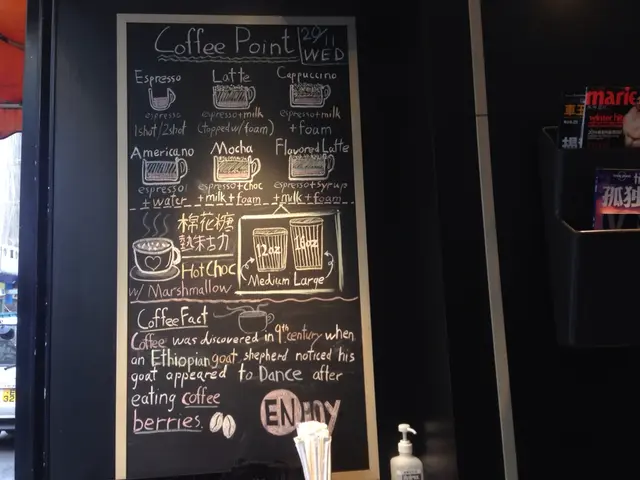 Coffee Point
29/11
WED
Espresso
Latte
Cappuccino
espresso
espresso+milk
espresso+milk
1shot/2shot
(topped w/ foam)
+ foam
Americano
Mocha
Flavored Latte
espresso
espresso+choc
espresso+syrup
+ water
+ milk + foam
+ milk + foam
棉花糖
熱朱古力
Hot Choc
w/ Marshmallow
12oz
16oz
Medium
Large
Coffee Fact
Coffee was discovered in 9th century when
an Ethiopian goat shepherd noticed his
goat appeared to Dance after
eating coffee
berries.
ENJOY
marie
孤獨